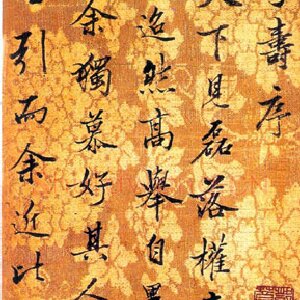 壽序
天下見磊落權
迤然高舉自異
余獨慕好其人
引而余近比